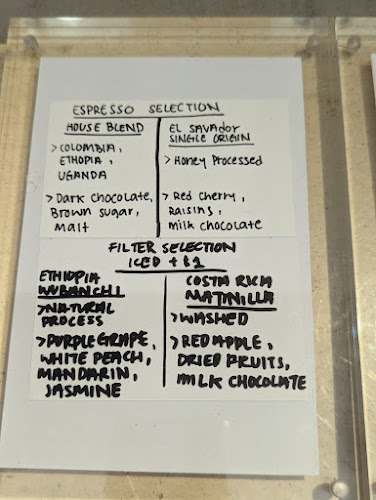 ESPRESSO SELECTION
HOUSE BLEND
> COLOMBIA,
ETHOPIA,
UGANDA
> Dark chocolate,
Brown sugar,
Malt
EL SAVADOR
SINGLE ORIGIN
> Honey Processed
> Red cherry,
Raisins,
milk chocolate
FILTER SELECTION
ICED + $1
ETHIOPIA
WUBANCHI
> NATURAL
PROCESS
> PURPLE GRAPE,
WHITE PEACH,
MANDARIN,
JASMINE
COSTA RICA
MATINILLA
> WASHED
> RED APPLE,
DRIED FRUITS,
MILK CHOCOLATE